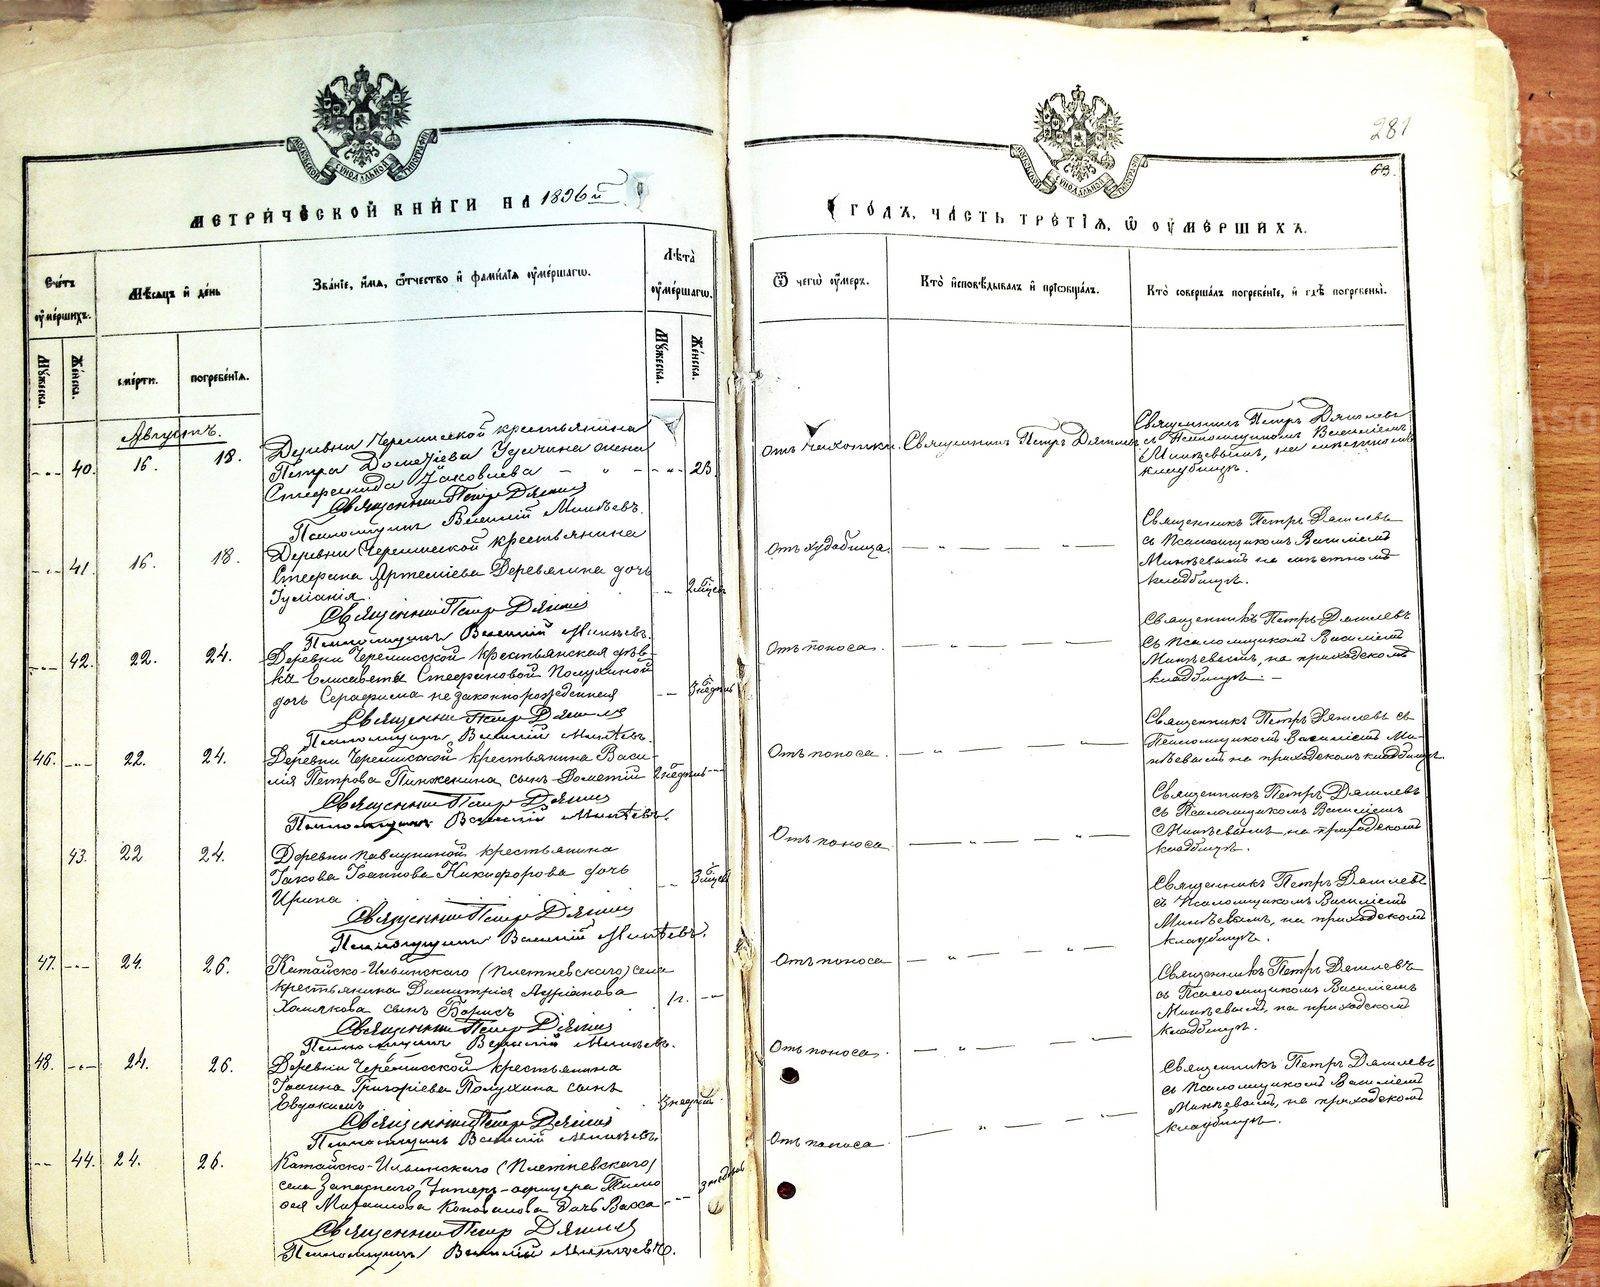 281
63.
МОСКОВСКОЙ СѴНОДАЛЬНОЙ ТИПОГРАФІИ
МОСКОВСКОЙ СѴНОДАЛЬНОЙ ТИПОГРАФІИ
МЕТРИ́ЧЕСКОЙ КНИ́ГИ НА 1896й
ГО́ДЪ, ЧА́СТЬ ТРЕ́ТІЯ, Ѡ ОУМЕ́РШИХЪ.
Сче́тъ оуме́ршихъ.
Мѣ́сяцъ и де́нь
Зва́ніе, и́мя, ѻ́тчество и фами́лія оуме́ршагѡ.
Лѣта̀ оуме́ршагѡ.
Му́жеска.
Же́нска.
сме́рти.
погребе́нія.
Му́жеска.
Же́нска.
Ѿ чегѡ̀ оу́меръ.
Кто̀ и́сповѣ́дывалъ и прїѡбща́лъ.
Кто̀ соверша́лъ погребе́ніе, и гдѣ̀ погребены̀.
Августъ.
40. 16. 18.
Деревни Черемисской крестьянина
Петра Дометіева Удачина жена
Стефанида Яковлева 23.
Священникъ Петръ Дягилев
Псаломщикъ Василій Минѣевъ.
Отъ чахотки. Священникъ Петръ Дягилевъ
Священникъ Петръ Дягилевъ
съ Псаломщикомъ Василіемъ
Минѣевымъ, на мѣстномъ
кладбищѣ.
41. 16. 18.
Деревни Черемисской крестьянина
Стефана Артеміева Деревягина дочь
Іуліанія. 2 мѣсяц
Священникъ Петръ Дягилев
Псаломщикъ Василій Минѣевъ.
Отъ худобища.
Священникъ Петръ Дягилевъ
съ Псаломщикомъ Василіемъ
Минѣевымъ на мѣстномъ
кладбищѣ.
42. 22. 24.
Деревни Черемисской крестьянская дѣв-
ки Елисаветы Стефановой Полухиной
дочь Серафима незаконнорожденная 3 недѣль
Священникъ Петръ Дягилев
Псаломщикъ Василій Минѣевъ.
Отъ поноса.
Священникъ Петръ Дягилевъ
съ Псаломщикомъ Василіемъ
Минѣевымъ, на приходскомъ
кладбищѣ. —
46. 22. 24.
Деревни Черемисской крестьянина Васи-
лія Петрова Пинженина сынъ Дометій 2 недѣль
Священникъ Петръ Дягилев
Псаломщикъ Василій Минѣевъ.
Отъ поноса.
Священникъ Петръ Дягилевъ съ
Псаломщикомъ Василіемъ Ми-
нѣевымъ на приходскомъ кладбищѣ.
43. 22 24.
Деревни Павлушиной крестьянина
Іакова Іоаннова Никифорова дочь
Ирина. 3 мѣсяц
Священникъ Петръ Дягилев
Псаломщикъ Василій Минѣевъ.
Отъ поноса
Священникъ Петръ Дягилевъ
съ Псаломщикомъ Василіемъ
Минѣевымъ, на приходскомъ
кладбищѣ.
47. 24. 26.
Катайско-Ильинскаго (Плетневскаго) села
крестьянина Димитрія Адріанова
Хомякова сынъ Борисъ 1г.
Священникъ Петръ Дягилев
Псаломщикъ Василій Минѣевъ.
Отъ поноса
Священникъ Петръ Дягилевъ
съ Псаломщикомъ Василіемъ
Минѣевымъ, на приходскомъ
кладбищѣ.
48. 24. 26.
Деревни Черемисской крестьянина
Іоанна Григоріева Полухина сынъ
Евдокимъ 3 недѣли.
Священникъ Петръ Дягилев
Псаломщикъ Василій Минѣевъ.
Отъ поноса.
Священникъ Петръ Дягилевъ
съ Псаломщикомъ Василіемъ
Минѣевымъ, на приходскомъ
кладбищѣ.
44. 24. 26.
Катайско-Ильинскаго (Плетневскаго)
села Запаснаго Унтеръ-офицера Тимо
Коновалова дочь Васса
Священникъ Петръ Дягилев
Псаломщикъ Василій Минѣевъ.
Отъ поноса
Священникъ Петръ Дягилевъ
съ Псаломщикомъ Василіемъ
Минѣевымъ, на приходскомъ
кладбищѣ.